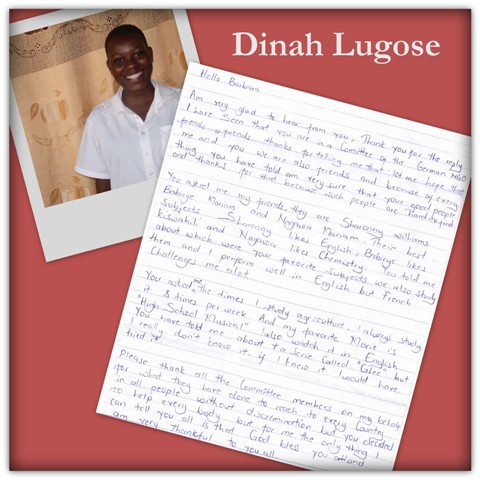 Dinah Lugose
Hello Barbara
Am very glad to hear from you, Thank you for the reply.
I have seen that you are in a Comitee of the German NGO
friends o friends thanks for telling me that. let me hope that
me and you we are also friends and because of every
thing you have told am very sure that your good people
and thanks for that because such people are hard to find
You asked me my friends, they are Sharony Williams
Babirye Mariam and Nagawa Mariam. Their best
subjects, Sharony likes English, Babirye likes
Kiswahili and Nagawa likes Chemistry. You told me
about which were your favorite subjects, we also study
them and I perform well in English but French
Challenges me alot
You asked me the times I study agriculture. I always study
it 3 times per week And my favorite Movie is
"High School Musical" I also watch it in English
You have told me about the Serie called "Glee" but
I really don't know it, if I knew it would have
tried it
Please thank all the Committee members on my behalf
for what they have done to reach to every Country
in all people without discrimination but you decided
to help every body but for me the only thing I
can tell you all is that God bless you all and
am very thankful to you all.